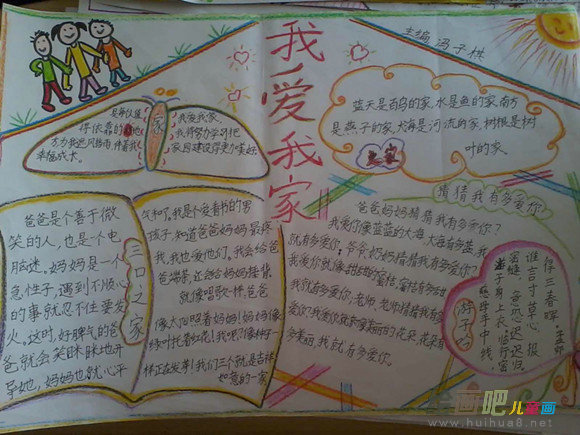 我爱我家
主编 冯子棋
家
我爱我家,
我将努力学习把
家园建设得更美好.
幸福成长。
蓝天是白鸟的家,水是鱼的家,南方
是燕子的家,大海是河流的家,树根是树
叶的家
爸爸是个善于微
笑的人,也是个电
脑迷。妈妈是一个
急性子,遇到不顺心
的事就忍不住要发
火。这时,好脾气的爸
爸就会笑眯眯地开
导她,妈妈也就心平
三口之家
气和了。我是个爱看书的男
孩子,知道爸爸妈妈最疼
我,我也爱他们。我会给爸
爸端茶,
就像唱歌一样。爸爸
像太阳照着妈妈!妈妈像
绿叶托着红花!我呢?像种子一
样正在发芽!我们三个就是吉祥
如意的一家
猜猜我有多爱你
爸爸妈妈猜猜我有多爱你?
我爱你像蓝蓝的大海,大海有多蓝,我
就有多爱你。爷爷奶奶猜猜我有多爱你?
我爱你就像甜甜的蜜糖,蜜糖有多甜
我就有多爱你。老师,老师猜猜我有多
爱你?我爱你就像美丽的花朵,花朵有
多美丽,我就有多爱你。
游子吟
慈母手中线
游子身上衣,临行密
密缝,意恐迟迟归
谁言寸草心,报
得三春晖。-孟郊
画吧儿童画
www.huihua8.net